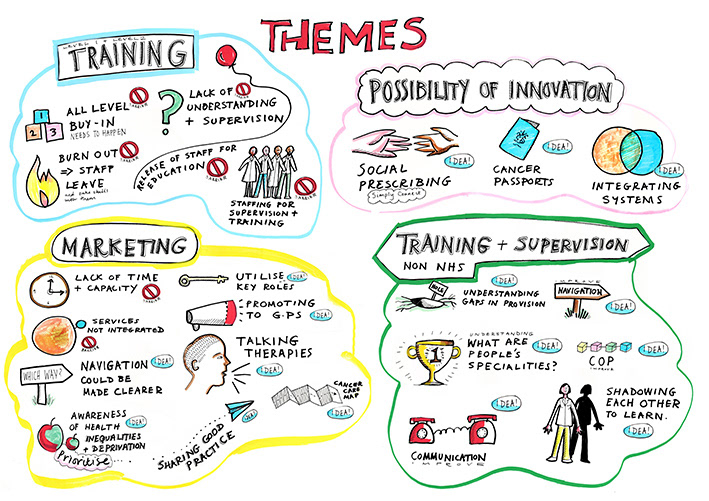 THEMES
LEVEL 1 + LEVEL 2
TRAINING
1 2 3
ALL LEVEL
BUY-IN
NEEDS TO HAPPEN
BARRIER
?
LACK OF
UNDERSTANDING
+ SUPERVISION
BARRIER
BURN OUT
⇒ STAFF
LEAVE
BARRIER
RELEASE OF STAFF FOR
EDUCATION
BARRIER
STAFFING FOR
SUPERVISION +
TRAINING
BARRIER
POSSIBILITY OF INNOVATION
SOCIAL
PRESCRIBING
Simply Connect
IDEA!
CANCER
PASSPORTS
IDEA!
INTEGRATING
SYSTEMS
IDEA!
MARKETING
LACK OF TIME
+ CAPACITY
BARRIER
UTILISE
KEY ROLES
IDEA!
SERVICES
NOT INTEGRATED
BARRIER
PROMOTING
TO G.PS
IDEA!
WHICH WAY?
NAVIGATION
COULD BE
MADE CLEARER
IDEA!
TALKING
THERAPIES
IDEA!
CANCER
CARE
MAP
IDEA!
AWARENESS
OF HEALTH
INEQUALITIES
+ DEPRIVATION
Prioritise
IDEA!
SHARING GOOD
PRACTICE
IDEA!
TRAINING + SUPERVISION
NON NHS
HOLE
UNDERSTANDING
GAPS IN PROVISION
IDEA!
IMPROVE
NAVIGATION
IDEA!
1
UNDERSTANDING
WHAT ARE
PEOPLE'S
SPECIALITIES?
IDEA!
COP
IMPROVE
IDEA!
COMMUNICATION
IMPROVE
IDEA!
SHADOWING
EACH OTHER
TO LEARN.
IDEA!